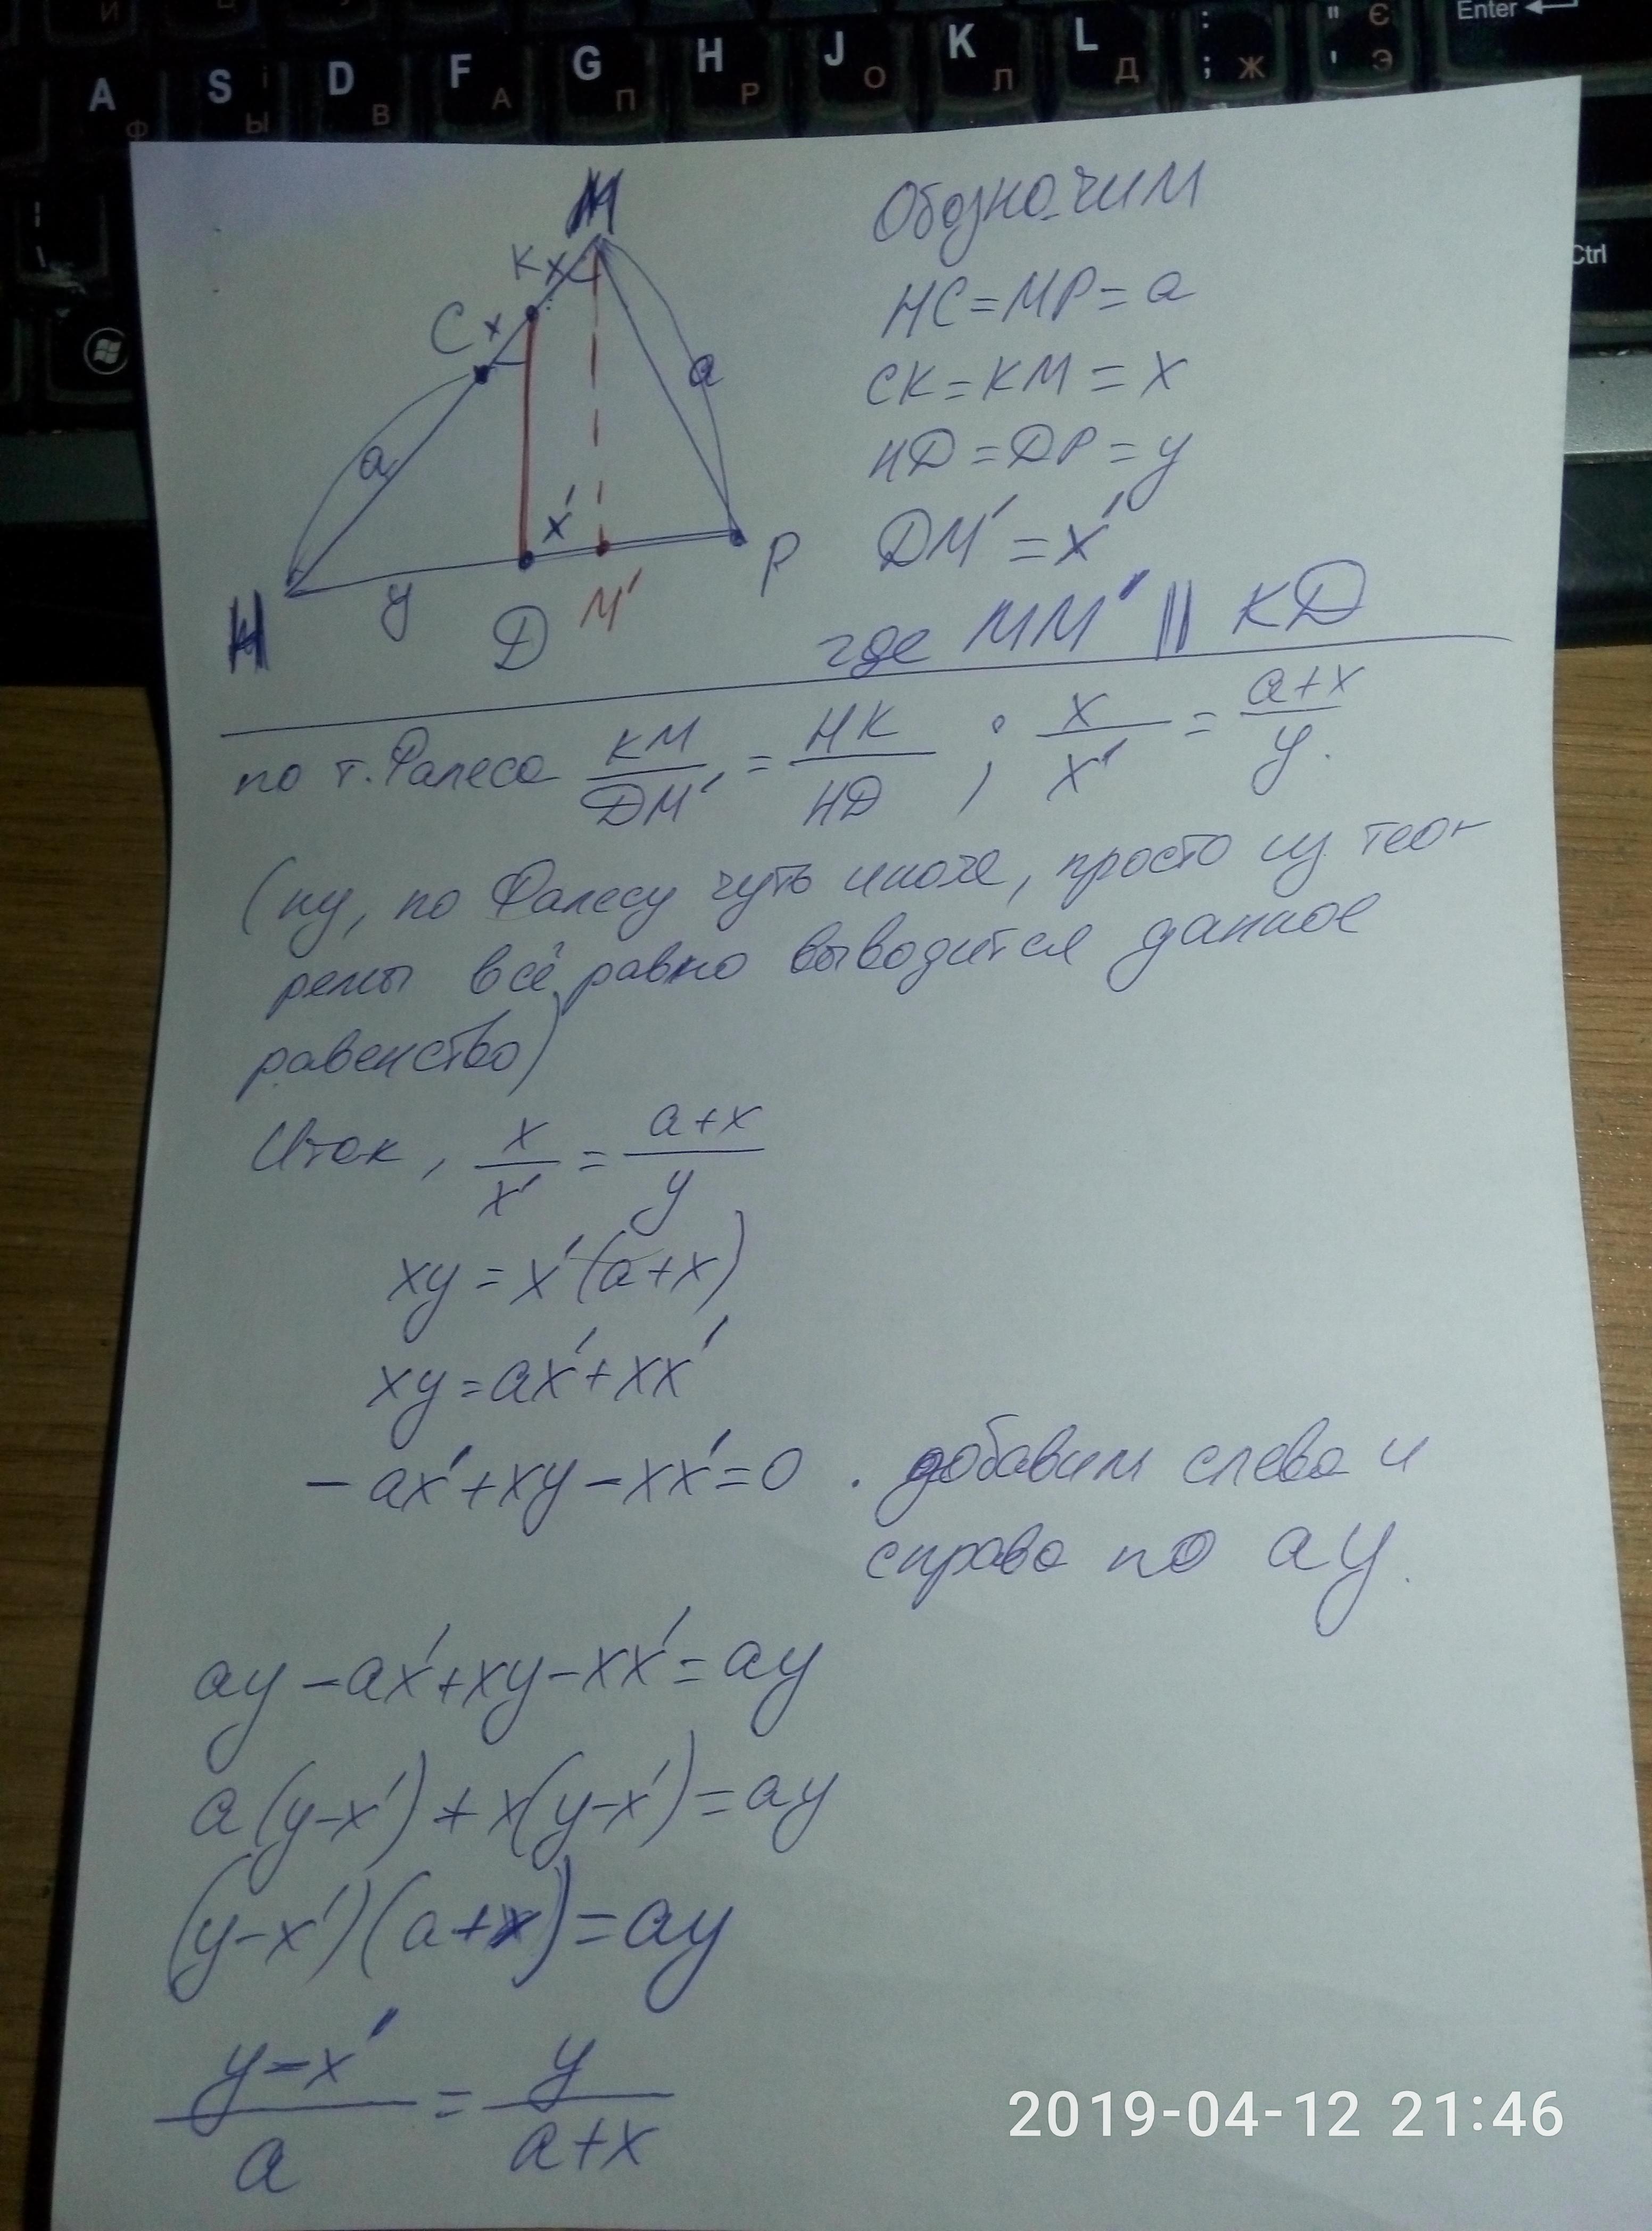 Enter
A Ф S І Ы D В F А G П H Р J О K Л L Д : ; Ж " ' Є Э
Ctrl
М
К x
С x
a
a
x'
Н
y
D
М'
Р
Обозначим
НС=МР=a
СК=КМ=x
НD=DР=y
DМ'=x'
где ММ' || КD
по т. Фалеса КМ/DМ' = НК/НD ; x/x' = a+x/y.
(ну, по Фалесу чуть иначе, просто из тео-
ремы всё равно выводится данное
равенство)
Итак, x/x' = a+x/y
xy=x'(a+x)
xy=ax'+xx'
-ax'+xy-xx'=0 . добавим слева и
справа по ay.
ay-ax'+xy-xx'=ay
a(y-x')+x(y-x')=ay
(y-x')(a+x)=ay
y-x'/a = y/a+x
2019-04-12 21:46